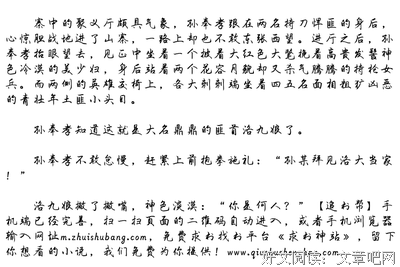 寨中的聚义厅颇具气象，孙奉孝跟在两名持刀悍匪的身后，
心惊胆战地进了山寨，一路上却也不敢东张西望。进厅之后，孙
奉孝抬眼望去，见正中坐着一个披着大红色大氅挽着高贵发髻神
色冷漠的美少妇，身后站着两个花容月貌却又杀气腾腾的持枪女
兵。而两侧的英雄交椅上，各大刺刺端坐着四五名面相粗犷凶恶
的青壮年土匪小头目。
孙奉孝知道这就是大名鼎鼎的匪首洛九娘了。
孙奉孝不敢怠慢，赶紧上前抱拳施礼：“孙某拜见洛大当家
！”
洛九娘撇了撇嘴，神色淡漠：“你是何人？”【追书帮】手
机端已经完善，扫一扫页面的二维码自动进入，或者手机浏览器
输入网址m.zhuishubang.com，免费求书找书平台《求书神站》，留下
你想看的小说，我们免费为你提供！www.qiushushenzhan.com
好文阅读：文章吧网